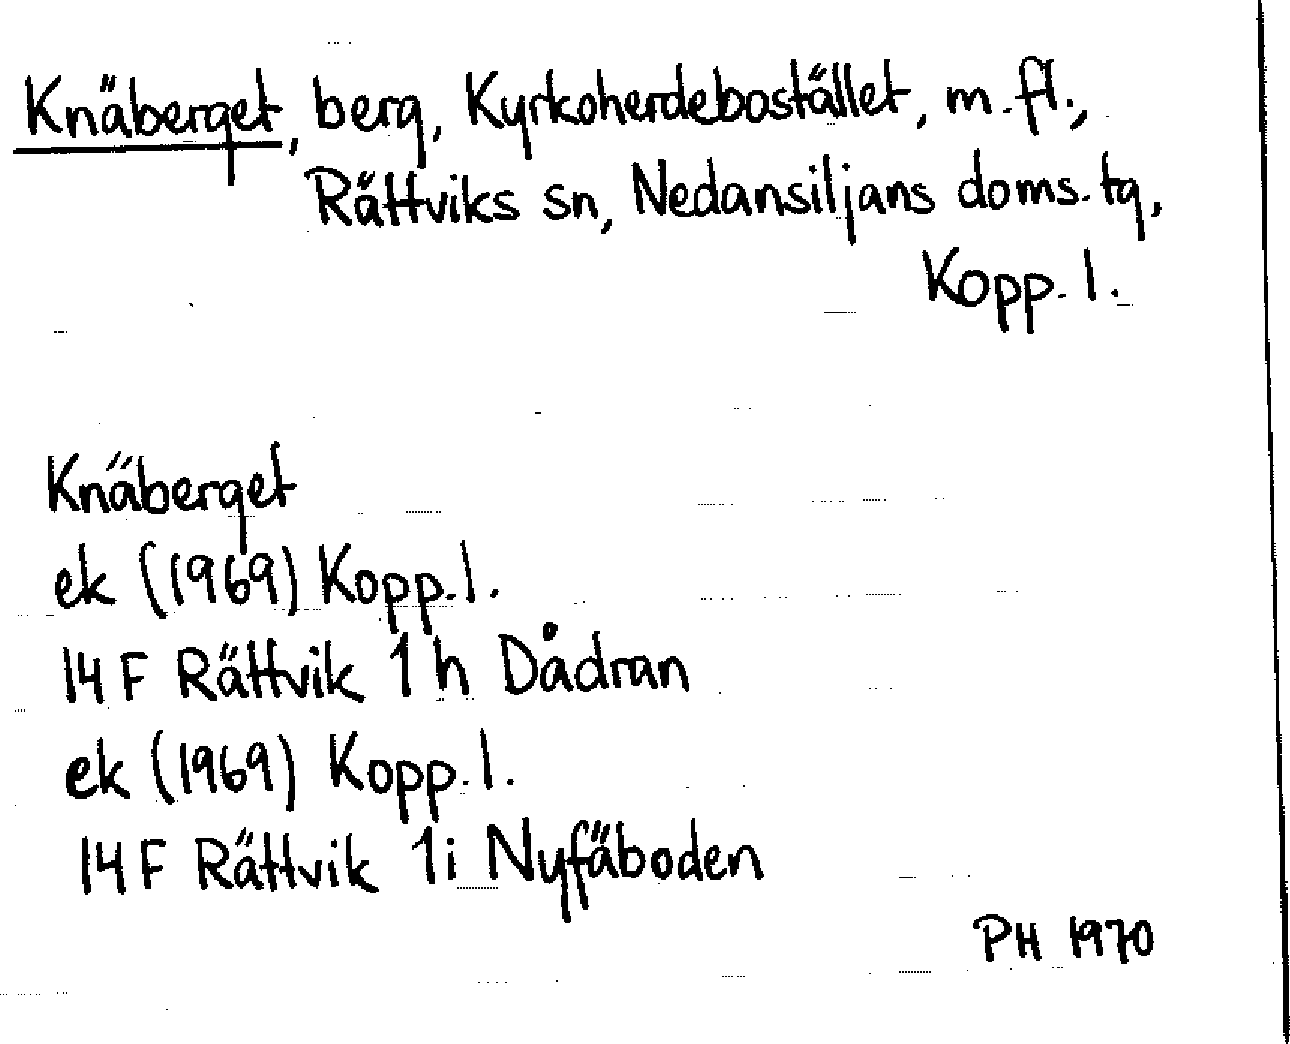 Knäberget, berg, Kyrkoherdebostället, m.fl.,
Rättviks sn, Nedansiljans doms. tg,
Kopp. l.
Knäberget
ek (1969) Kopp. l.
14 F Rättvik 1 h Dådran
ek (1969) Kopp. l.
14 F Rättvik 1i Nyfäboden
PH 1970